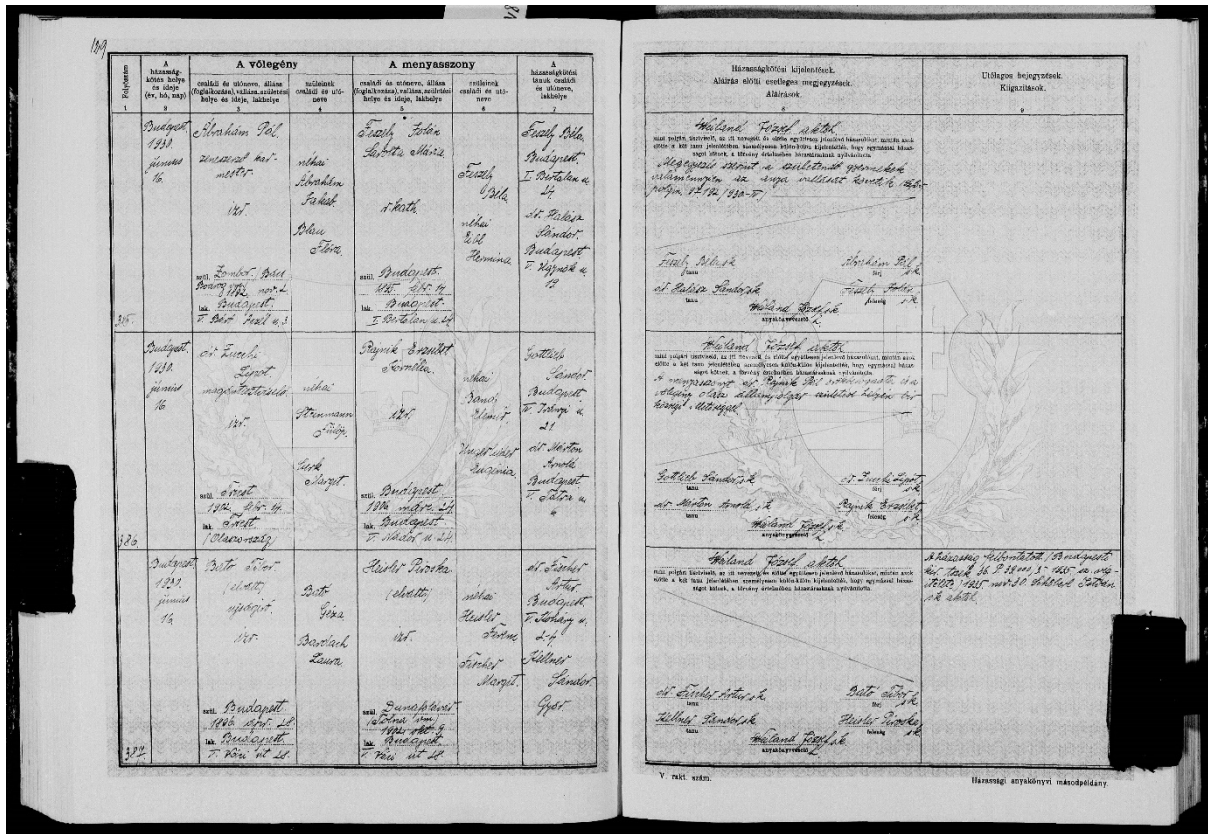 129
Folyószám
A
házasság-
kötés helye
és ideje
(év, hó, nap)
A vőlegény
családi és utóneve, állása
(foglalkozása), vallása, születési
helye és ideje, lakhelye
szüleinek
családi és utó-
neve
A menyasszony
családi és utóneve, állása
(foglalkozása), vallása, születési
helye és ideje, lakhelye
szüleinek
családi és utó-
neve
A
házasságkötési
tanuk családi
és utóneve,
lakhelye
1
2
3
4
5
6
7
Budapest,
1930.
június
16.
Ábrahám Pál
zeneszerző kar-
mester
izr.
szül. Zombor, Bács
Bodrog vm.
1892 nov. 2
lak. Budapest
V. Báró Aczél u. 3
néhai
Ábrahám
Jakab
Blau
Flóra
Feszely Jolán
Sarolta Mária
r. kath
szül. Budapest
febr. 14
lak. Budapest
I. Bertalan u. 24
Feszely
Béla
néhai
Eibl
Hermina
Feszely Béla
Budapest
I. Bertalan u.
24.
dr. Halász
Sándor
Budapest
V. Ügynök u.
19
385.
Budapest,
1930.
június
16
dr. Zucchi
Lipót
magántisztviselő
izr.
szül. Triest
1902 febr. 14.
lak. Triest
(Olaszország)
néhai
Steinmann
Fülöp,
Margit
Rajnik Erzsébet
Kornélia
izr.
szül. Budapest
1906 márc. 24
lak. Budapest
V. Nádor u. 24.
néhai
Elemér
Eugénia
Gottlieb
Sándor
Budapest
IV. u.
21
dr. Márton
Arnold
Budapest
V. Tátra u.
4
386.
Budapest,
1930.
június
16.
Bató Tibor
(elvált)
ujságíró
izr.
szül. Budapest
1896 ápr. 28.
lak. Budapest
V. Váci út 28.
Bató
Géza
Bardach
Laura
Heisler Piroska
(elvált)
izr.
szül. Dunaföldvár
(Tolna vm)
1902 okt. 9.
lak. Budapest
V. Váci út 28.
néhai
Heisler
Ferenc
Fischer
Margit
dr. Fischer
Artur
Budapest
V. Koháry u.
2-4.
Kellner
Sándor
Győr
387.
Házasságkötési kijelentések.
Aláírás előtti esetleges megjegyzések.
Aláírások.
8
Utólagos bejegyzések.
Kiigazítások.
9
Weiland József aktél
mint polgári tisztviselő, az itt nevezett és előtte együttesen jelenlévő házasulókat, miután azok
előtte a két tanu jelenlétében személyesen külön-külön kijelentették, hogy egymással házas-
ságot kötnek, a törvény értelmében házastársaknak nyilvánította.
Megegyezés szerint a születendő gyermekek
valamennyien az anya vallását követik
Feszely Béla sk
tanu
Ábrahám Pál sk
férj
dr. Halász Sándor sk
tanu
Feszely Jolán sk
feleség
Weiland József sk
anyakönyvvezető
Weiland József aktél
mint polgári tisztviselő, az itt nevezett és előtte együttesen jelenlévő házasulókat, miután azok
előtte a két tanu jelenlétében személyesen külön-külön kijelentették, hogy egymással házas-
ságot kötnek, a törvény értelmében házastársaknak nyilvánította.
A menyasszony dr. Rajnik Pál
vőlegény olasz állampolgár
Gottlieb Sándor sk
tanu
dr. Zucchi Lipót sk
férj
dr. Márton Arnold sk
tanu
Rajnik Erzsébet sk
feleség
Weiland József sk
anyakönyvvezető
Weiland József aktél
mint polgári tisztviselő, az itt nevezett és előtte együttesen jelenlévő házasulókat, miután azok
előtte a két tanu jelenlétében személyesen külön-külön kijelentették, hogy egymással házas-
ságot kötnek, a törvény értelmében házastársaknak nyilvánította.
A házasság felbontatott (Budapesti
István
sk aktél
dr. Fischer Artur sk
tanu
Bató Tibor sk
férj
Kellner Sándor sk
tanu
Heisler Piroska sk
feleség
Weiland József sk
anyakönyvvezető
V. rakt. szám.
Házassági anyakönyvi másodpéldány.